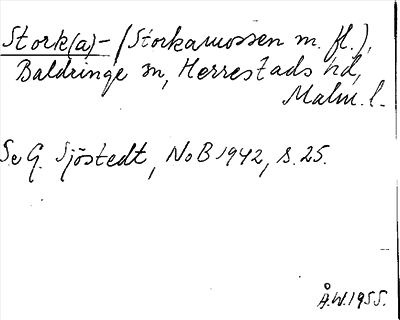 Stork(a)- (Storkamossen m. fl.),
Baldringe sn, Herrestads hd,
Malm. l.
Se G. Sjöstedt, NoB 1942, s. 25.
Å.W. 1955.